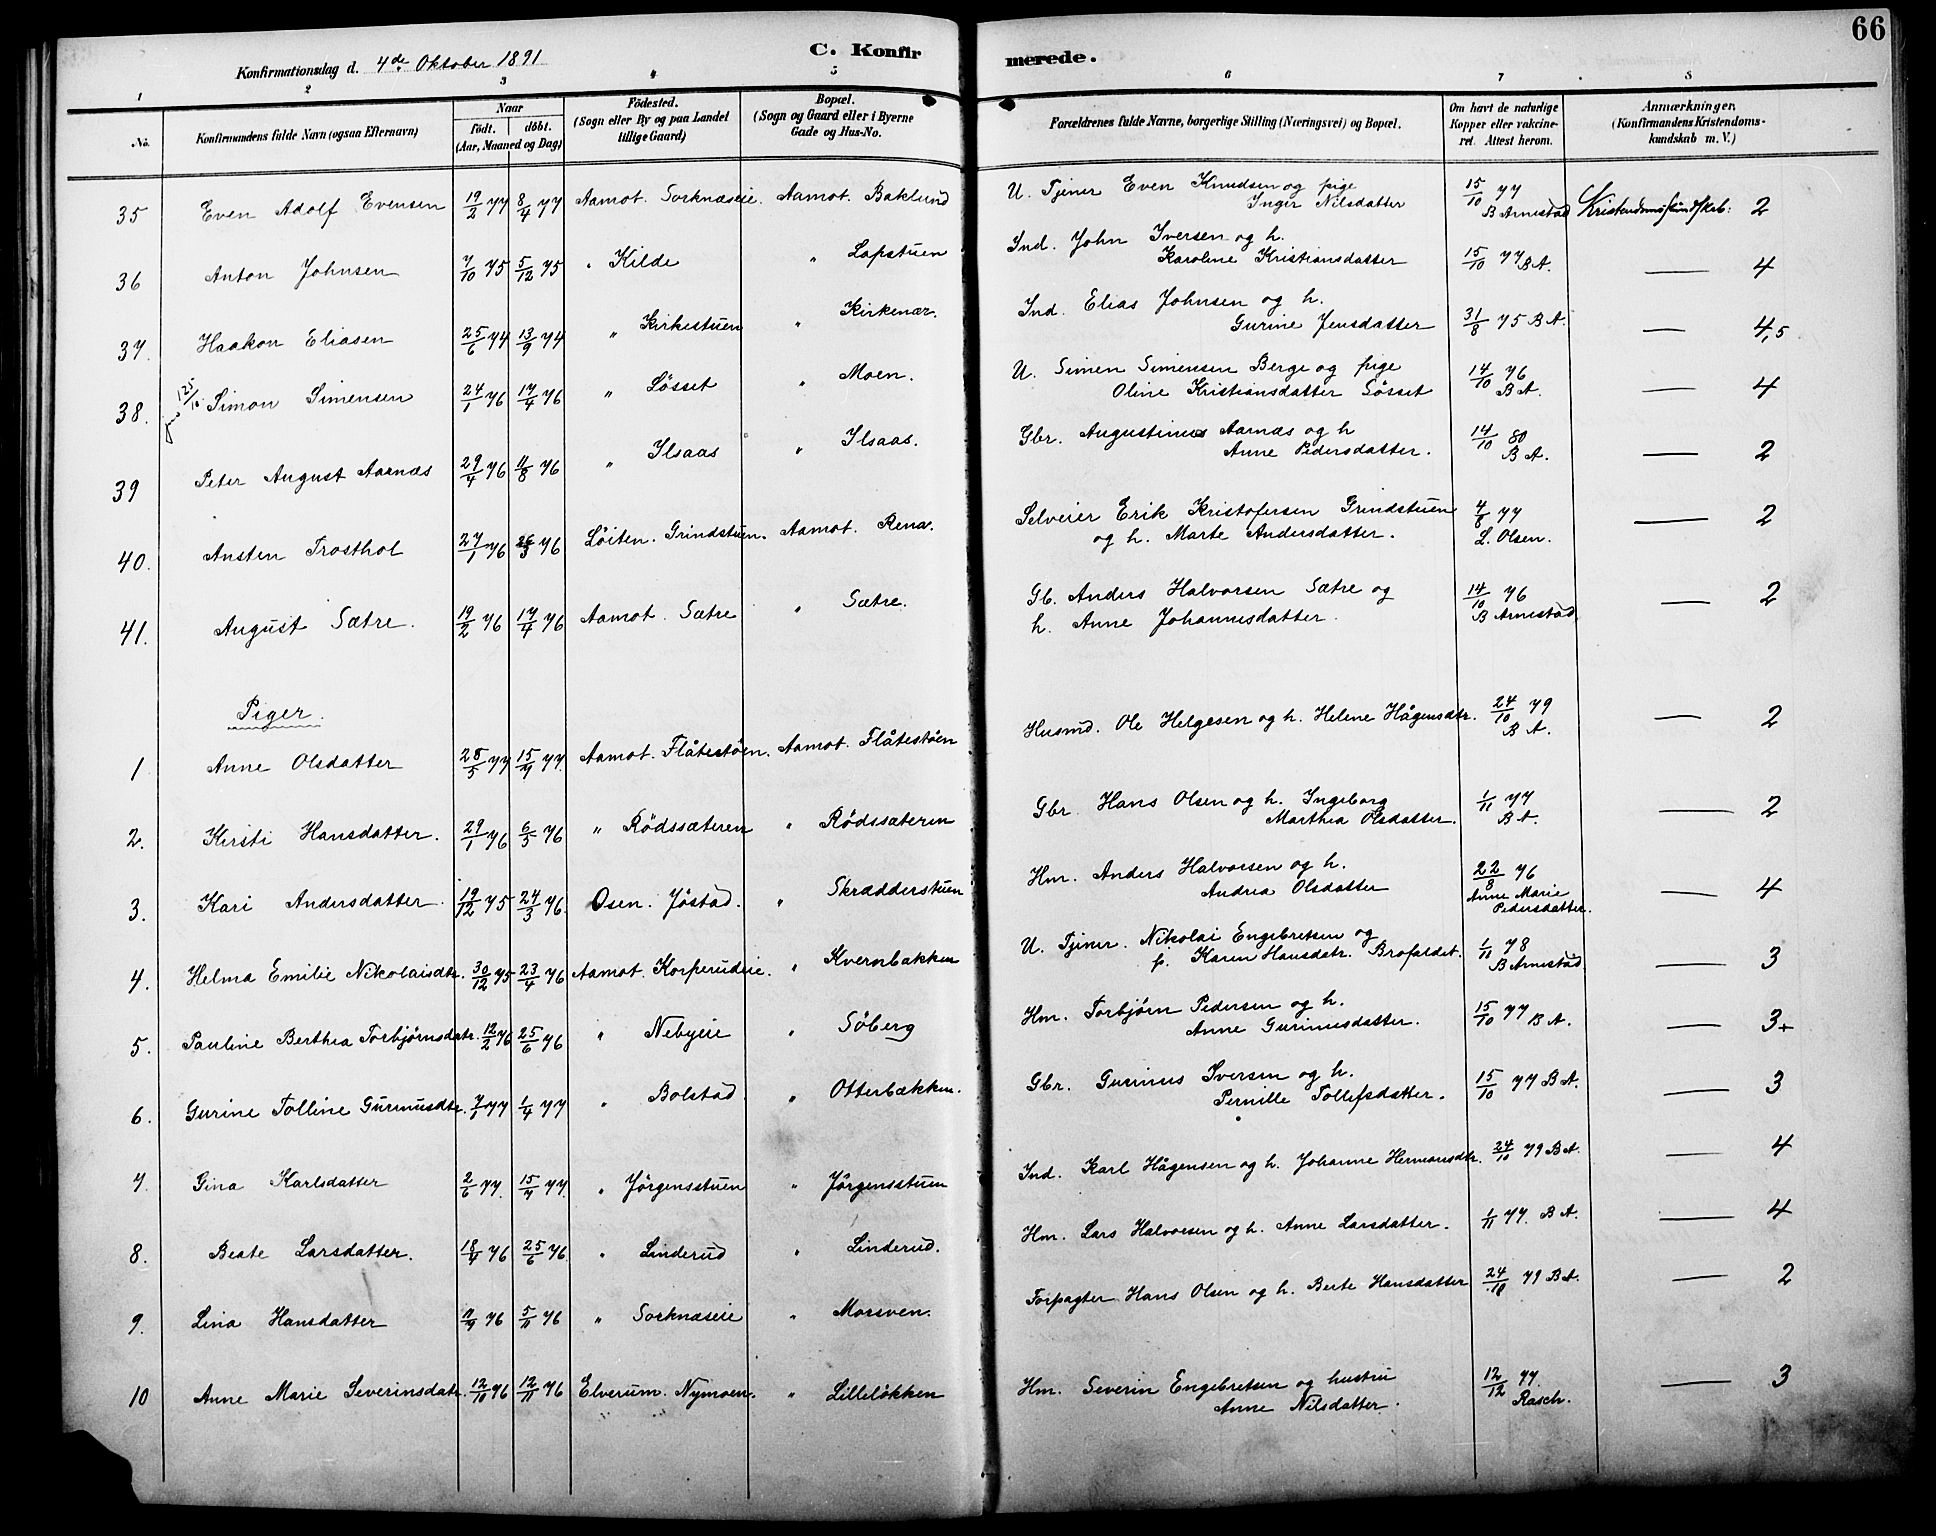 66
Konfirmationsdag d. 4de Oktober 1891
C. Konfirmerede.
1 2 3 4 5 6 7 8
No. Konfirmandens fulde Navn (ogsaa Efternavn) Naar født. døbt. (Aar, Maaned og Dag) Fødested. (Sogn eller By og paa Landet tillige Gaard) Bopæl. (Sogn og Gaard eller i Byerne Gade og Hus-No. Forældrenes fulde Navne, borgerlige Stilling (Næringsvei) og Bopæl. Om havt de naturlige Kopper eller vakcineret. Attest herom. Anmærkninger. (Konfirmandens Kristendomskundskab m. V.)
35 Even Adolf Evensen 19/2 77 8/4 77 Aamot. Sorknæseie. Aamot. Baklund U. Tjener Even Knudsen og pige Inger Nilsdatter 15/10 77 B Arnestad Kristendomskundskab: 2
36 Anton Johnsen 7/10 75 5/12 75 " Kilde " Lapstuen Ind. John Iversen og h. Karoline Kristiansdatter 15/10 77 B A. — 4
37. Haakon Eliasen 25/6 74 13/9 74 " Kirkestuen " Kirkenær. Ind. Elias Johnsen og h. Gurine Jensdatter 31/8 75 B A. — 4,5
38. Simon Simensen 24/1 76 17/4 76 " Løsset " Moen. U. Simen Simensen Berge og pige Oline Kristiansdatter Løsset 14/10 76 B A. — 4
39 Peter August Aarnæs 29/4 76 11/8 76 " Ilsaas " Ilsaas. Gbr. Augustinus Aarnæs og h Anne Pedersdatter. 14/10 80 B A. — 2
40. Ansten Trosthol 27/1 76 26/3 76 Løiten. Grindstuen. Aamot. Rena. Selveier Erik Kristofersen Grindstuen og h. Marte Andersdatter. 4/8 77 L. Olsen. — 2
41. August Sætre. 19/2 76 17/4 76 Aamot. Sætre " Sætre. Gb. Anders Halvorsen Sætre og h. Anne Johannesdatter. 14/10 76 B Arnestad. — 2
Piger.
1 Anne Olsdatter 28/5 77 15/7 77. Aamot. Flåtestøen. Aamot. Flåtestøen Husmd. Ole Helgesen og h. Helene Hågensdtr. 24/10 79 B A. — 2
2. Kirsti Hansdatter. 29/1 76 6/5 76 " Rødssæteren " Rødssæteren Gbr. Hans Olsen og h. Ingeborg Marthea Olsdatter. 1/11 77 B A. — 2
3. Kari Andersdatter. 19/12 75 24/3 76. Osen. Jøstad. " Skrædderstuen Hm. Anders Halvorsen og h. Andrea Olsdatter 22/8 76 Anne Marie Pedersdatter. — 4
4. Helma Emilie Nikolaisdtr. 30/12 75 23/4 76 Aamot. Korperudeie. " Kvernbakken U. Tjener. Nikolai Engebretsen og p. Karen Hansdatr. Brofaldet. 1/11 78 B Arnestad — 3
5. Pauline Berthea Torbjørnsdatr. 12/2 76 25/6 76 " Nebyeie " Søberg Hm. Torbjørn Pedersen og h. Anne Gurinusdatter. 15/10 77 B A. — 3+
6. Gurine Tolline Gurinusdtr. 7/1 77 1/4 77 " Bolstad " Otterbækken. Gbr. Gurinus Iversen og h. Pernille Tollefsdatter. 15/10 77 B A. — 3
7. Gina Karlsdatter 2/6 77. 15/7 77. " Jørgensstuen " Jørgensstuen Ind. Karl Hågensen og h. Johanne Hermansdtr. 24/10 79 B A. — 4
8. Beate Larsdatter. 18/4 76 25/6 76. " Linderud " Linderud. Hm. Lars Halvorsen og h. Anne Larsdatter. 1/11 77. B A. — 4
9. Lina Hansdatter 76 5/11 76 " Sorknæseie " Morsven. Forpagter Hans Olsen og h. Berte Hansdatter 24/10 79 B A. — 2
10 Anne Marie Severinsdatr. 12/10 76 12/11 76 Elverum. Nymoen. " Lilleløkken Hm. Severin Engebretsen og hustru Anne Nilsdatter. 12/12 77. Rasch. — 3